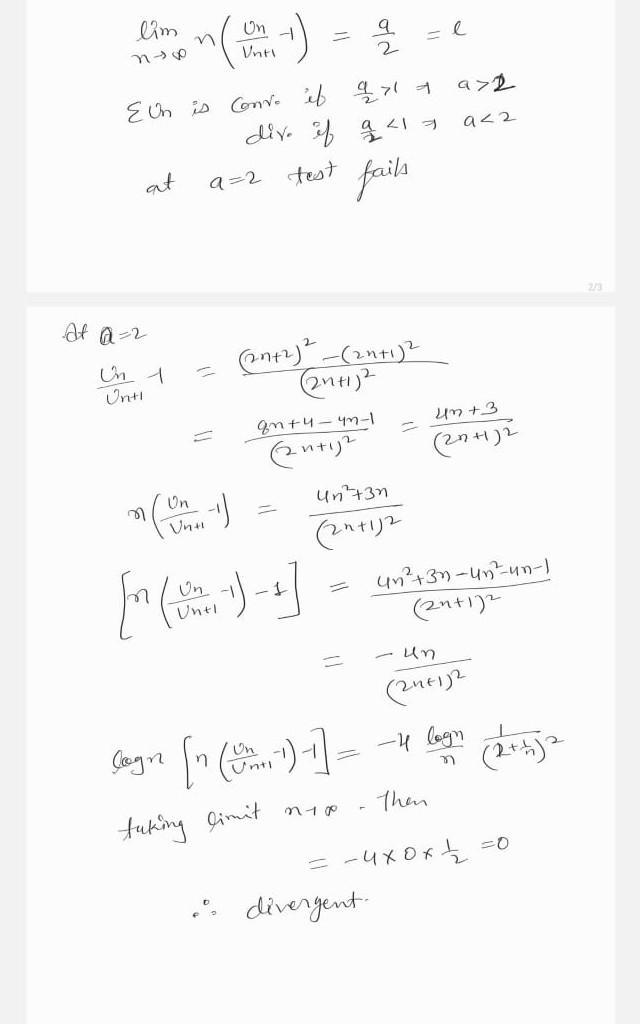 lim n→∞ n(Un/Un+1 -1) = a/2 = l
ΣUn is conv. if a/2 >1 ⇒ a>2
div. if a/2 <1 ⇒ a<2
at a=2 test fails
2/3
At a=2
Un/Un+1 -1 = ((2n+2)² -(2n+1)²)/(2n+1)²
= (8n+4-4n-1)/(2n+1)² = (4n+3)/(2n+1)²
n(Un/Un+1 -1) = (4n²+3n)/(2n+1)²
[n(Un/Un+1 -1) -1] = (4n²+3n-4n²-4n-1)/(2n+1)²
= -4n/(2n+1)²
logn [n(Un/Un+1 -1)-1] = -4 logn/n 1/(2+1/n)²
taking limit n→∞. Then
= -4×0×1/2 =0
∴ divergent.